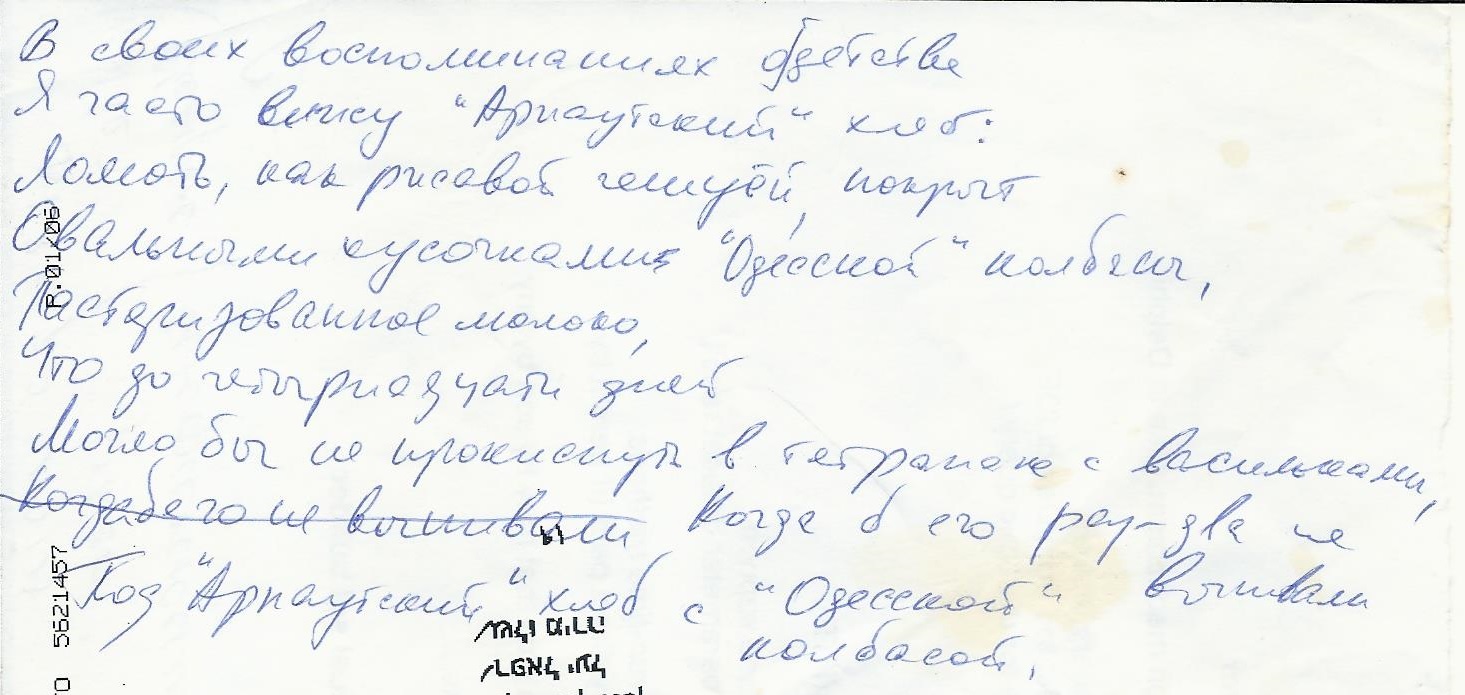 В своих воспоминаниях о детстве
Я часто вижу "Арнаутский" хлеб:
Ломоть, как рисовой чешуёй, покрыт
Овальными кусочками "Одесской" колбасы,
Пастеризованное молоко,
Что до четырнадцати дней
Могло бы не прокиснуть в тетрапаке с васильками,
Когда б его не выпивали Когда б его раз-два не выпивали
Под "Арнаутский" хлеб с "Одесской"
колбасой.
P.01/06
5621457